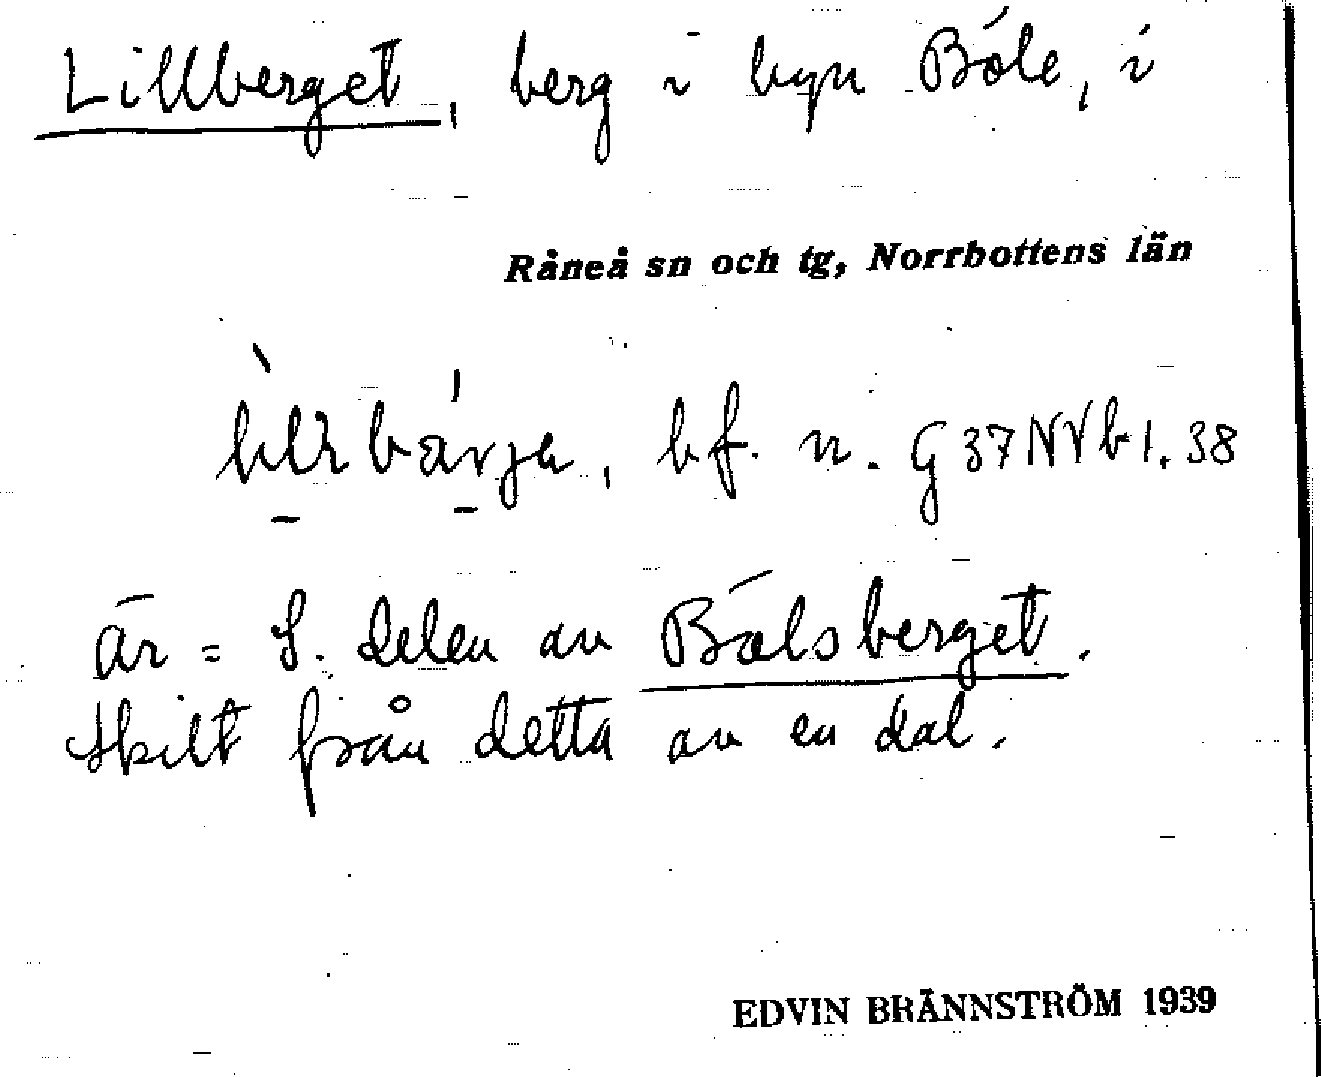 Lillberget, berg i byn Böle, i
Råneå sn och tg, Norrbottens län
bf. n. G 37 NV b 1. 38
är = S. delen av Bölsberget.
Skilt från detta av en dal.
EDVIN BRÄNNSTRÖM 1939